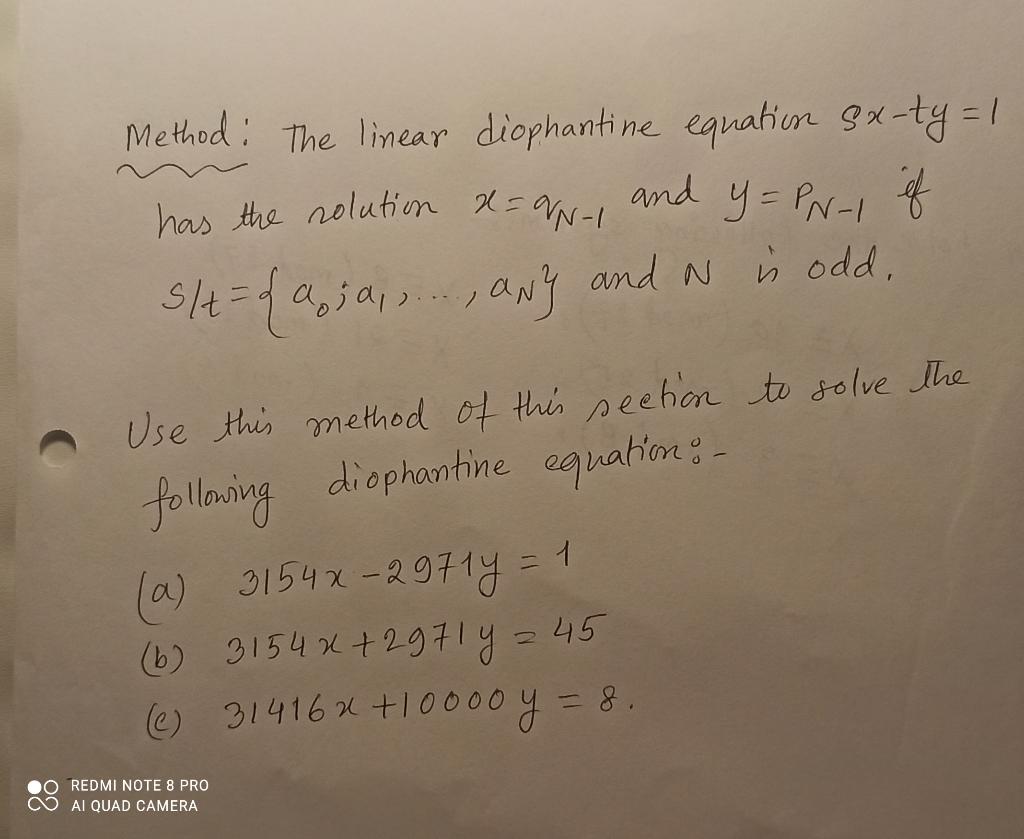 Method: The linear diophantine equation sx-ty=1
has the solution x=qN-1 and y=PN-1 if
s/t={a0;a1,...,aN} and N is odd.
Use this method of this section to solve the
following diophantine equation:-
(a) 3154x-2971y=1
(b) 3154x+2971y=45
(c) 31416x+10000y=8.
REDMI NOTE 8 PRO
AI QUAD CAMERA